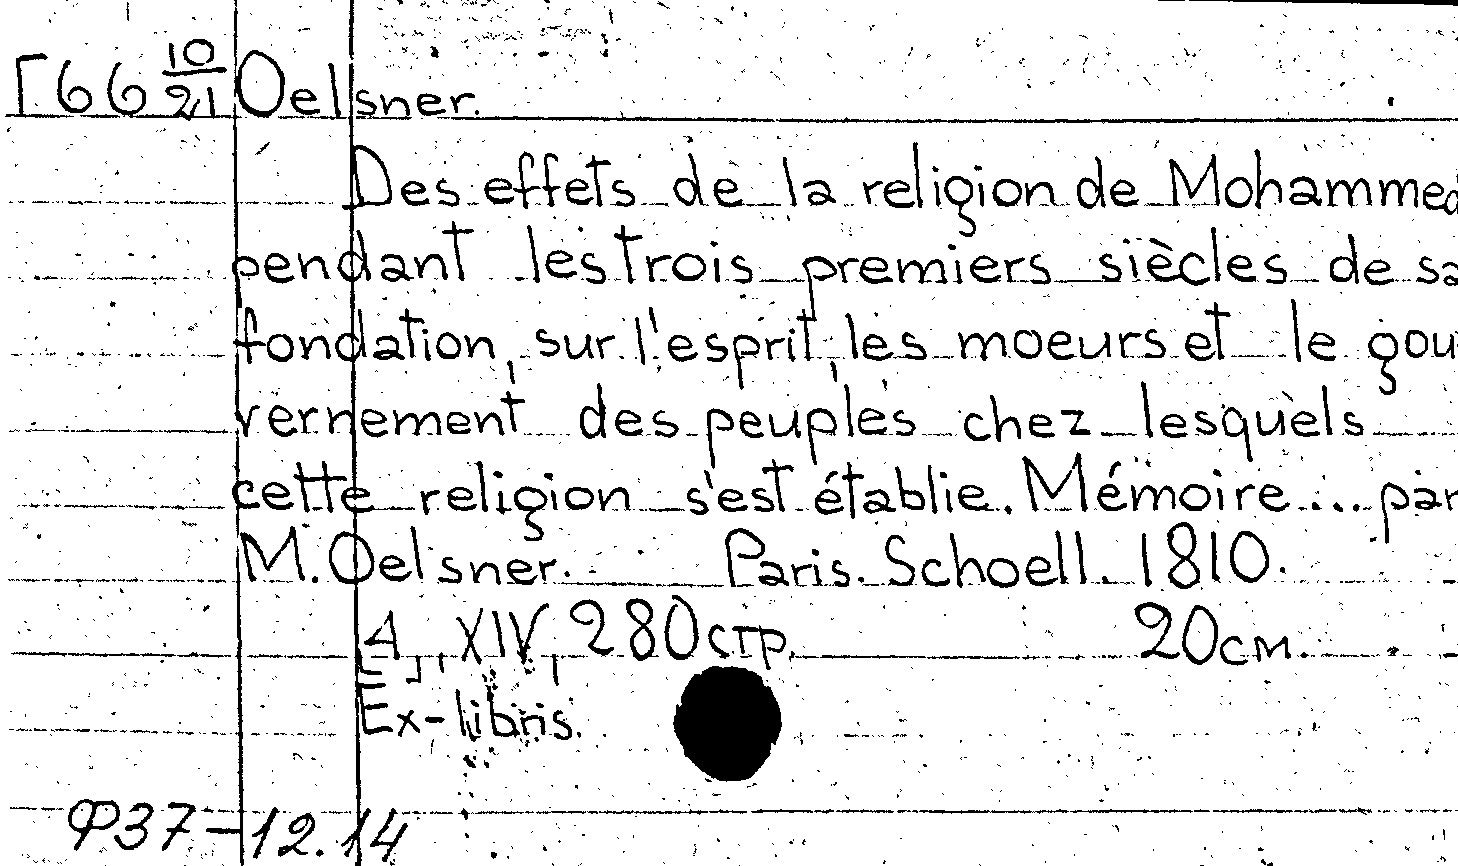 Г66 10/21 Oelsner.
Des effets de la religion de Mohammed
pendant les trois premiers siècles de sa
fondation, sur l'esprit, les moeurs et le gou
vernement des peuples chez lesquels
cette religion s'est établie. Mémoire... par
M. Oelsner. Paris. Schoell. 1810.
[4], XIV, 280 стр. 20 см.
Ex-libris.
Ф37-12.14